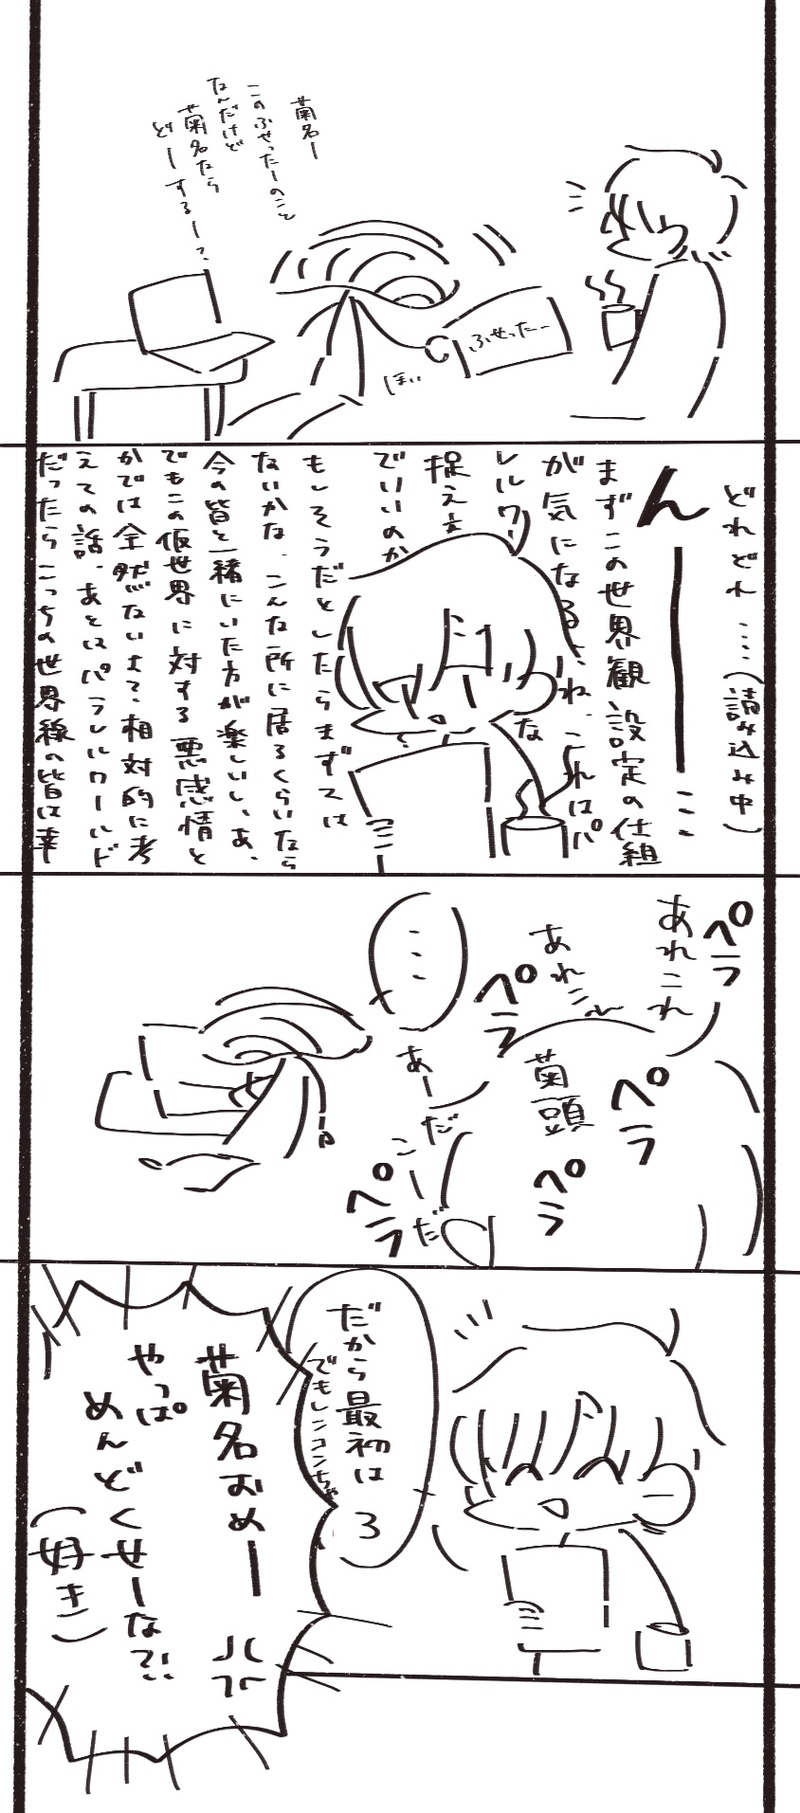 菊名ー
このふせったーのこと
なんだけど
菊名なら
どーするー?
ふせったー
ほい
どれどれ....(読み込み中)
んー...
まずこの世界観設定の仕組
が気になるよね、これはパ
レルワ
な
捉え方
でいいのか
もしそうだとしたらまずては
ないかな、こんな所に居るくらいなら
今の皆と一緒にいた方が楽しいし、あ、
でもこの仮世界に対する悪感情と
かでは全然ないよ?、相対的に考
えての話、あとはパラレルワールド
だったらこっちの世界線の皆は幸
ペラ
あれこれ
あれこれ
ペラ
ペラ
菊頭
ペラ
...
あーだ
こーだ
ペラ
だから最初は
でもレンコンちゃ
3
菊名おめー
やっぱ
めんどくせーな?!
(好き)